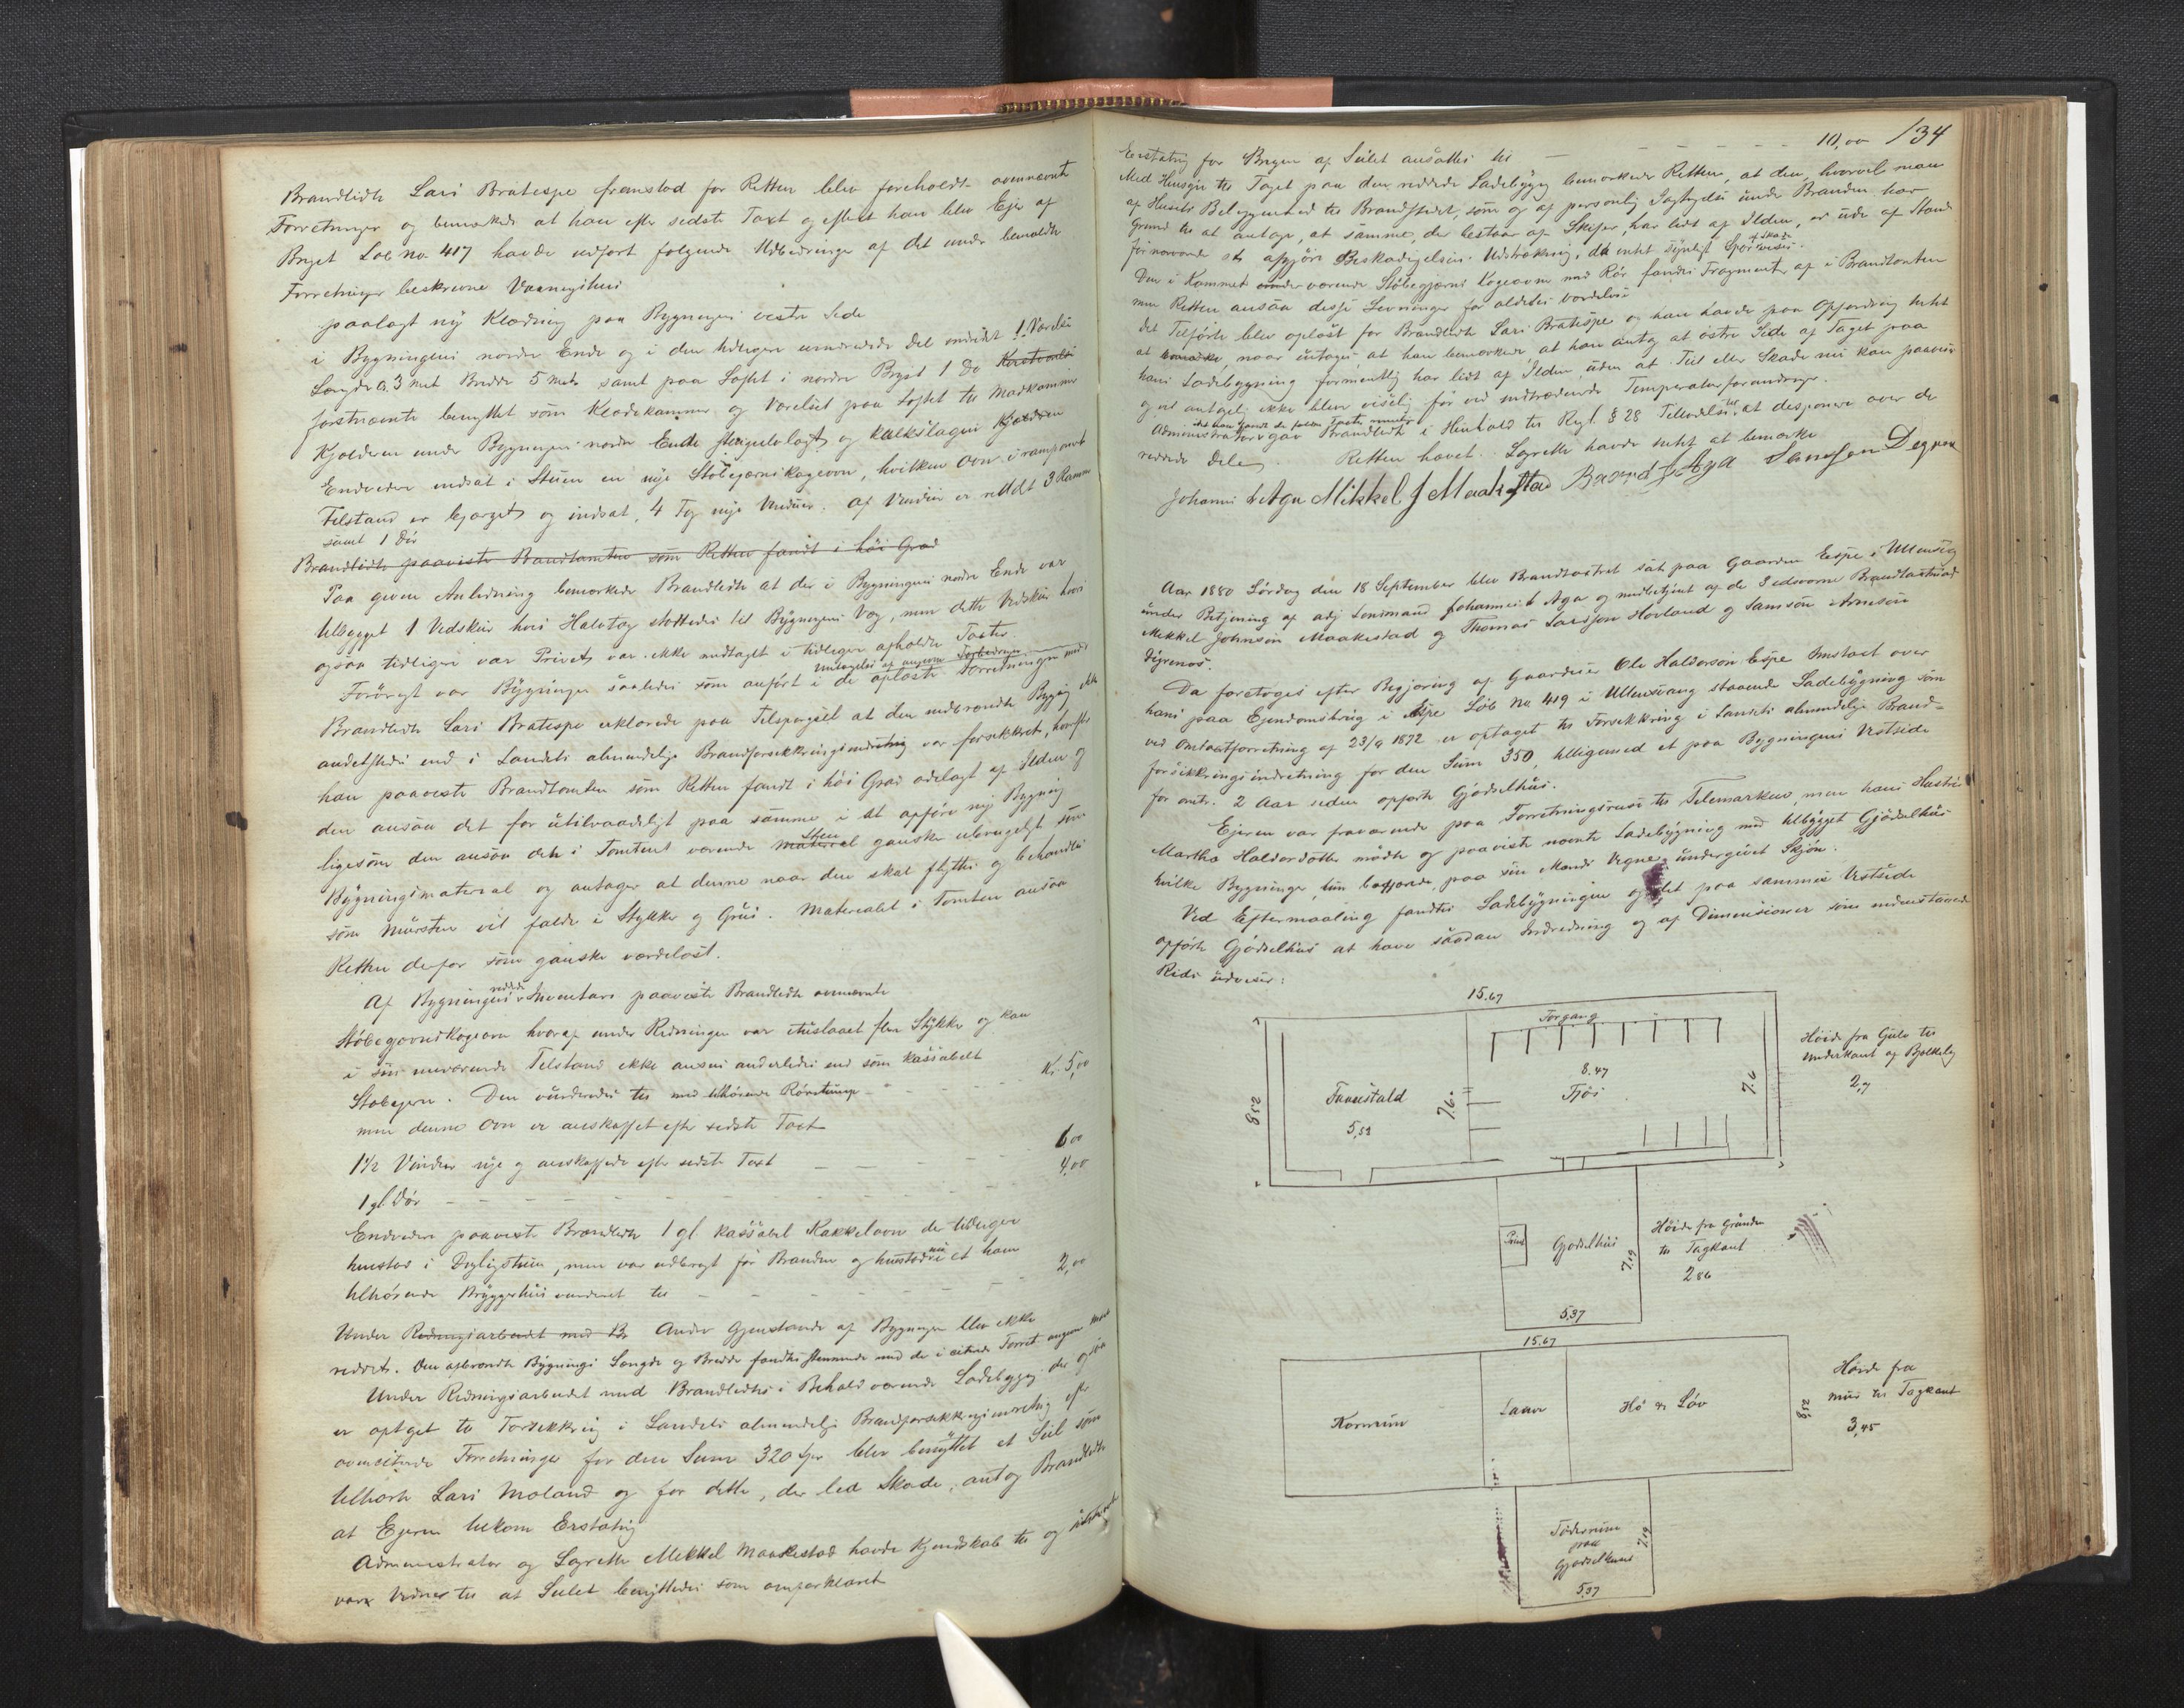 Brandlidte Lars Bratespe fremstod for Retten blev foreholdt ovennævnte
Forretninger og bemærkede at han efter sidste Taxt og efterat han blev Ejer af
Bruget Løb no 417 havde udført følgende Udbedringer af det under bemeldte
Forretninger beskrevne Vaaningshus
paalagt ny Klædning paa Bygningens vestre Side
i Bygningens nordre Ende og i den tidligere uindredede Del indredet 1 Værelse
Længde 3 Met Bredde 5 Met samt paa Loftet i nordre 1 Do
førstnævnte benyttet som Klædekammer og Værelset paa Loftet til Madkammer
Kjælderen under Bygningens nordre Ende og kalkslagen
Endvidere indsat i Stuen en ny Støbejernskogeovn, hvilken Ovn i ramponeret
Tilstand er bjerget og indsat 4 Fag nye Vinduer. Af Vinduer er reddet 3 Rammer
samt 1 Dør
Brandlidte paaviste Brandtomten som Retten fandt i høi Grad
Paa given Anledning bemærkede Brandlidte at der i Bygningens nordre Ende var
tilbygget 1 Vedskur hvis Halvtag støttedes til Bygningens Væg, men dette Vedskur hvori
ogsaa tidligere var Privet, var ikke medtaget i tidligere afholdte Taxter.
Forøvrigt var Bygningen saaledes som anført i de oplæste Forretninger med
Undtagelse af angivne Forbedringer
Brandlidte Lars Bratespe erklærede paa Tilspørgsel at den nedbrændte Bygning ikke
andetsteds end i Landets almindelige Brandforsikkringsindretning var forsikkret, hvorefter
han paaviste Brandtomten som Retten fandt i høi Grad ødelagt af Ilden og
den ansaa det for utilraadeligt paa samme i at opføre ny Bygning
ligesom den ansaa det i Tomten værende Sten ganske ubrugeligt som
Bygningsmaterial og antager at denne naar den skal flyttes og behandles
som Mursten vil falde i Stykker og Grus. Materialet i Tomten ansaa
Retten derfor som ganske værdeløst.
Af Bygningens reddede Inventar paaviste Brandlidte ovennævnte
Støbejernskogeovn hvoraf under Redningen var ituslaaet flere Stykker og kan
i sin nuværende Tilstand ikke ansees anderledes end som kassabelt
Støbejern. Den vurderedes til med tilhørende Rørstump - Kr. 5,00
men denne Ovn er anskaffet efter sidste Taxt
1½ Vinduer nye og anskaffede efter sidste Taxt - - - 6,00
1 gl. Dør - - - - - 4,00
Endvidere paaviste Brandlidte 1 gl. kassabel Kakkelovn der tidligere
henstod i Dagligstuen, men var udbragt før Branden og henstod nu i et ham
tilhørende Bryggerhus vurderet til - - - 2,00
Under Redningsarbeidet med Br Andre Gjenstande af Bygningen blev ikke
reddet. Den afbrændte Bygnings Længde og Bredde fandtes stemmende med de i citerede Forret. angivne Maal
Under Redningsarbeidet med Brandlidtes i Behold værende Ladebygg. der ogsaa
er optaget til Forsikkring i Landets almindelige Brandforsikkringsindretning efter
ovenciterede Forretninger for den Sum 320 Spd blev benyttet et Seil som
tilhørte Lars Moland og for dette, der led Skade, antog Brandlidte
at Ejeren bekom Erstatning
Administrator og Lagrette Mikkel Maakestad havde Kjendskab til og
vare Vidner til at Seilet benyttedes som omforklaret
134
Erstatning for Brugen af Seilet ansattes til - - - - - 10,00
Med Hensyn til Taget paa den reddede Ladebygg bemærkede Retten, at den, hvorvel man
af Husets Beliggenhed til Brandstedet, som og af personlig Iagttagelse under Branden har
Grund til at antage, at samme, der bestaar af Skifer, har lidt af Ilden, er ude af Stand
for nærværende at opgjøre Beskadigelsens Udstrækning, da intet synligt Spor af Skade
Den i Kammet værende Støbejerns Kogeovn med Rør fandtes Fragmenter af i Brandtomten
men Retten ansaa disse Levninger for aldeles værdeløse
Det Tilførte blev oplæst for Brandlidte Lars Bratespe og han havde paa Opfordring intet
at bemærke, naar undtages at han bemærkede, at han antog at østre Side af Taget paa
hans Ladebygning formentlig har lidt af Ilden uden at Feil eller Skade nu kan paavises
og vil antagelig ikke blive viselig før ved indtrædende Temperaturforandringer.
Administrator gav Brandlidte i Henhold til Regl. § 28 Tilladelse til at desponere over de
reddede Dele. Retten hævet. Lagrette havde intet at bemærke
Johannes L Aga Mikkel J Maakestad Baard J. Aga Samson Degrenes
Aar 1880 Lørdag den 18 September blev Brandtaxtret sat paa Gaarden Espe i Ullensvang
under Betjening af adj Lensmand Johannes L Aga og medbetjent af de 3 edsvorne Brandtaxtmænd
Mikkel Johnsen Maakestad og Thomas Larssen Hovland og Samson Arnesen
Digrenes.
Da foretoges efter Begjæring af Gaardeier Ole Haldorsen Espe Omtaxt over
hans paa Ejendomsbrug i Espe Løb No 419 i Ullensvang staaende Ladebygning som
ved Omtaxtforretning af 23/9 1872 er optaget til Forsikkring i Landets almindelige Brand-
forsikkringsindretning for den Sum 350, tilligemed et paa Bygningens Vestside
for omtr. 2 Aar siden opført Gjødselhus.
Ejeren var fraværende paa Forretningsreise til Telemarken, men hans Hustru
Martha Haldorsdotter mødte og paaviste nævnte Ladebygning med tilbygget Gjødselhus
hvilke Bygninger hun begjærede, paa sin Mands Vegne, undergivet Skjøn.
Ved Eftermaaling fandtes Ladebygningen og det paa sammes Vestside
opførte Gjødselhus at have saadan Indredning og af Dimensioner som nedenstaaende
Rids udviser:
15.67
Forgang
8.47
Fjøs
7.6
Faarestald
5,52
7.6
8 25
Høide fra Gulv til
Underkant af Bjelkelag
2,7
Privet
Gjødselhus
7.19
5.37
Høide fra Grunden
til Tagkant
2 86
15.67
Kornrum
Laave
Hø & Løv
8 25
Høide fra
mur til Tagkant
3,45
Føderum
paa
Gjødselhuset
7.19
5.37